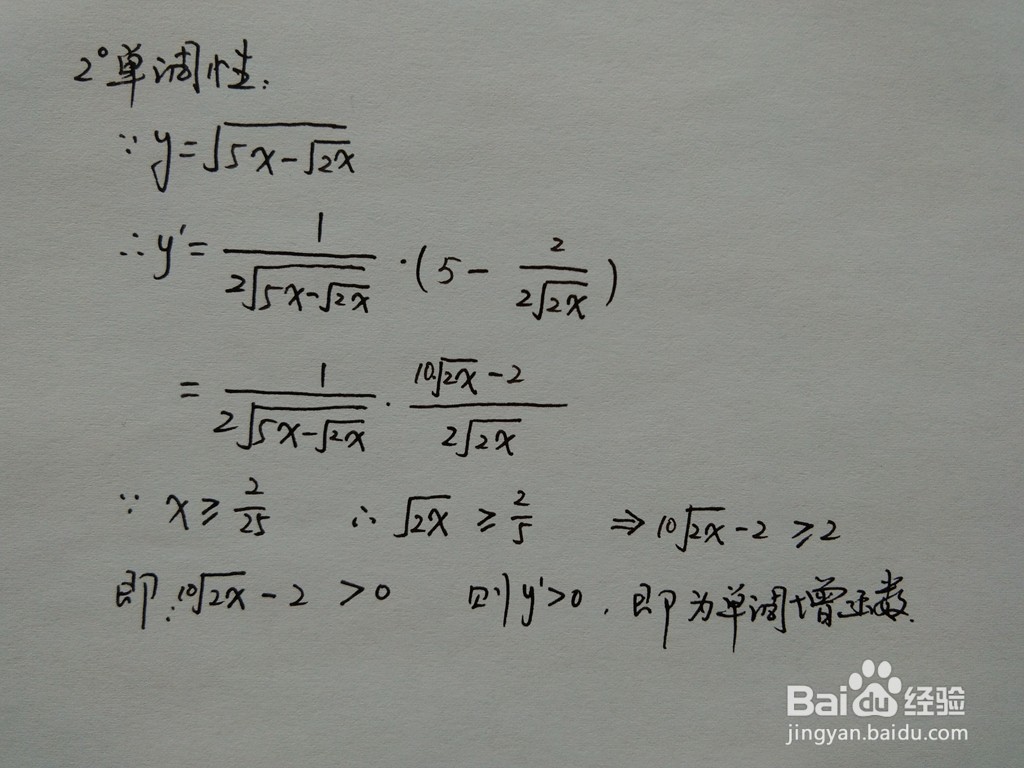 2°单调性:
∵ y=√(5x-√(2x))
∴ y'= 1/(2√(5x-√(2x))) · (5 - 2/(2√(2x)))
= 1/(2√(5x-√(2x))) · (10√(2x) -2)/(2√(2x))
∵ x ≥ 2/25 ∴ √(2x) ≥ 2/5 ⇒ 10√(2x) -2 ≥2
即:10√(2x) - 2 >0 则y'>0, 即为单调增函数.
Bai 经验
jingyan.baidu.com